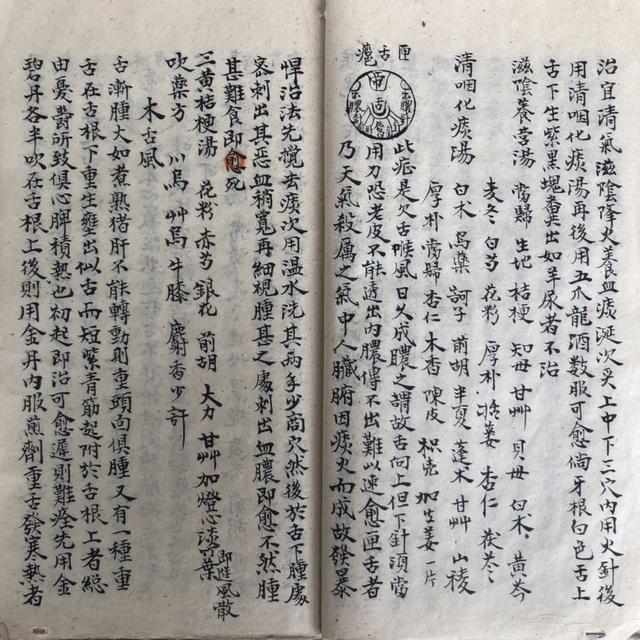 治宜清氣滋陰降火養血痰涎次灸上中下三穴內用火針後
用清咽化痰湯再後用五爪龍酒數服可愈倘牙根白色舌上
舌下生紫黑塊糞出如羊屎者不治
滋陰養榮湯 當歸 生地 桔梗 知毋 甘艸 貝毋 白朮 黃芩
麦冬 白芍 花粉 厚朴 姜 杏仁 茯苓
清咽化痰湯 白朮 烏藥 訶子 前胡 半夏 蓬朮 甘艸 山稜
厚朴 當歸 杏仁 木香 陳皮 枳壳 加生姜一片
匣舌癰
此症是欠舌喉風日久成膿之謂故舌向上但下針須當
用刀恐老皮不能透出內膿得不出難以速愈匣舌者
乃天氣殺厲之氣中人臟腑因痰火而成故發暴
悍治法先攪去痰次用温水洗其兩手少商穴然後於舌下腫處
宻刺出其惡血稍寬再細視腫甚之處刺出血膿即愈不然腫
甚難食即愈死
三黃桔梗湯 花粉 赤芍 銀花 前胡 大力 甘艸 加燈心 葉 即進風散
吹藥方 川烏 艸烏 牛膝 麝香少許
木舌風
舌漸腫大如煮熟猪肝不能轉動則重頭向俱腫又有一種重
舌在舌根下重生壅出似舌而短紫青筋起附於舌根上者總
由憂鬱所致俱心脾積熱也初起即治可愈遲則難痊先用金
碧丹各半吹在舌根上後則用金丹內服煎劑重舌發寒熱者